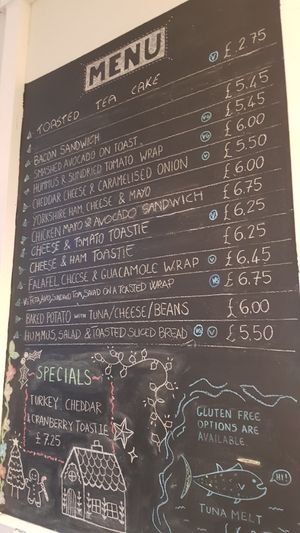 MENU
TOASTED TEA CAKE V £2.75
BACON SANDWICH £5.45
SMASHED AVOCADO ON TOAST £5.45
HUMMUS & SUNDRIED TOMATO WRAP VG £6.00
CHEDDAR CHEESE & CARAMELISED ONION V £5.50
YORKSHIRE HAM, CHEESE & MAYO £6.00
CHICKEN MAYO & AVOCADO SANDWICH £6.75
CHEESE & TOMATO TOASTIE V £6.25
CHEESE & HAM TOASTIE £6.25
FALAFEL CHEESE & GUACAMOLE WRAP V £6.45
SALAD ON A TOASTED WRAP £6.75
BAKED POTATO WITH TUNA/CHEESE/BEANS £6.00
HUMMUS, SALAD & TOASTED SLICED BREAD V £5.50
SPECIALS
TURKEY CHEDDAR
& CRANBERRY TOASTIE
£7.25
GLUTEN FREE
OPTIONS ARE
AVAILABLE
HI!
TUNA MELT